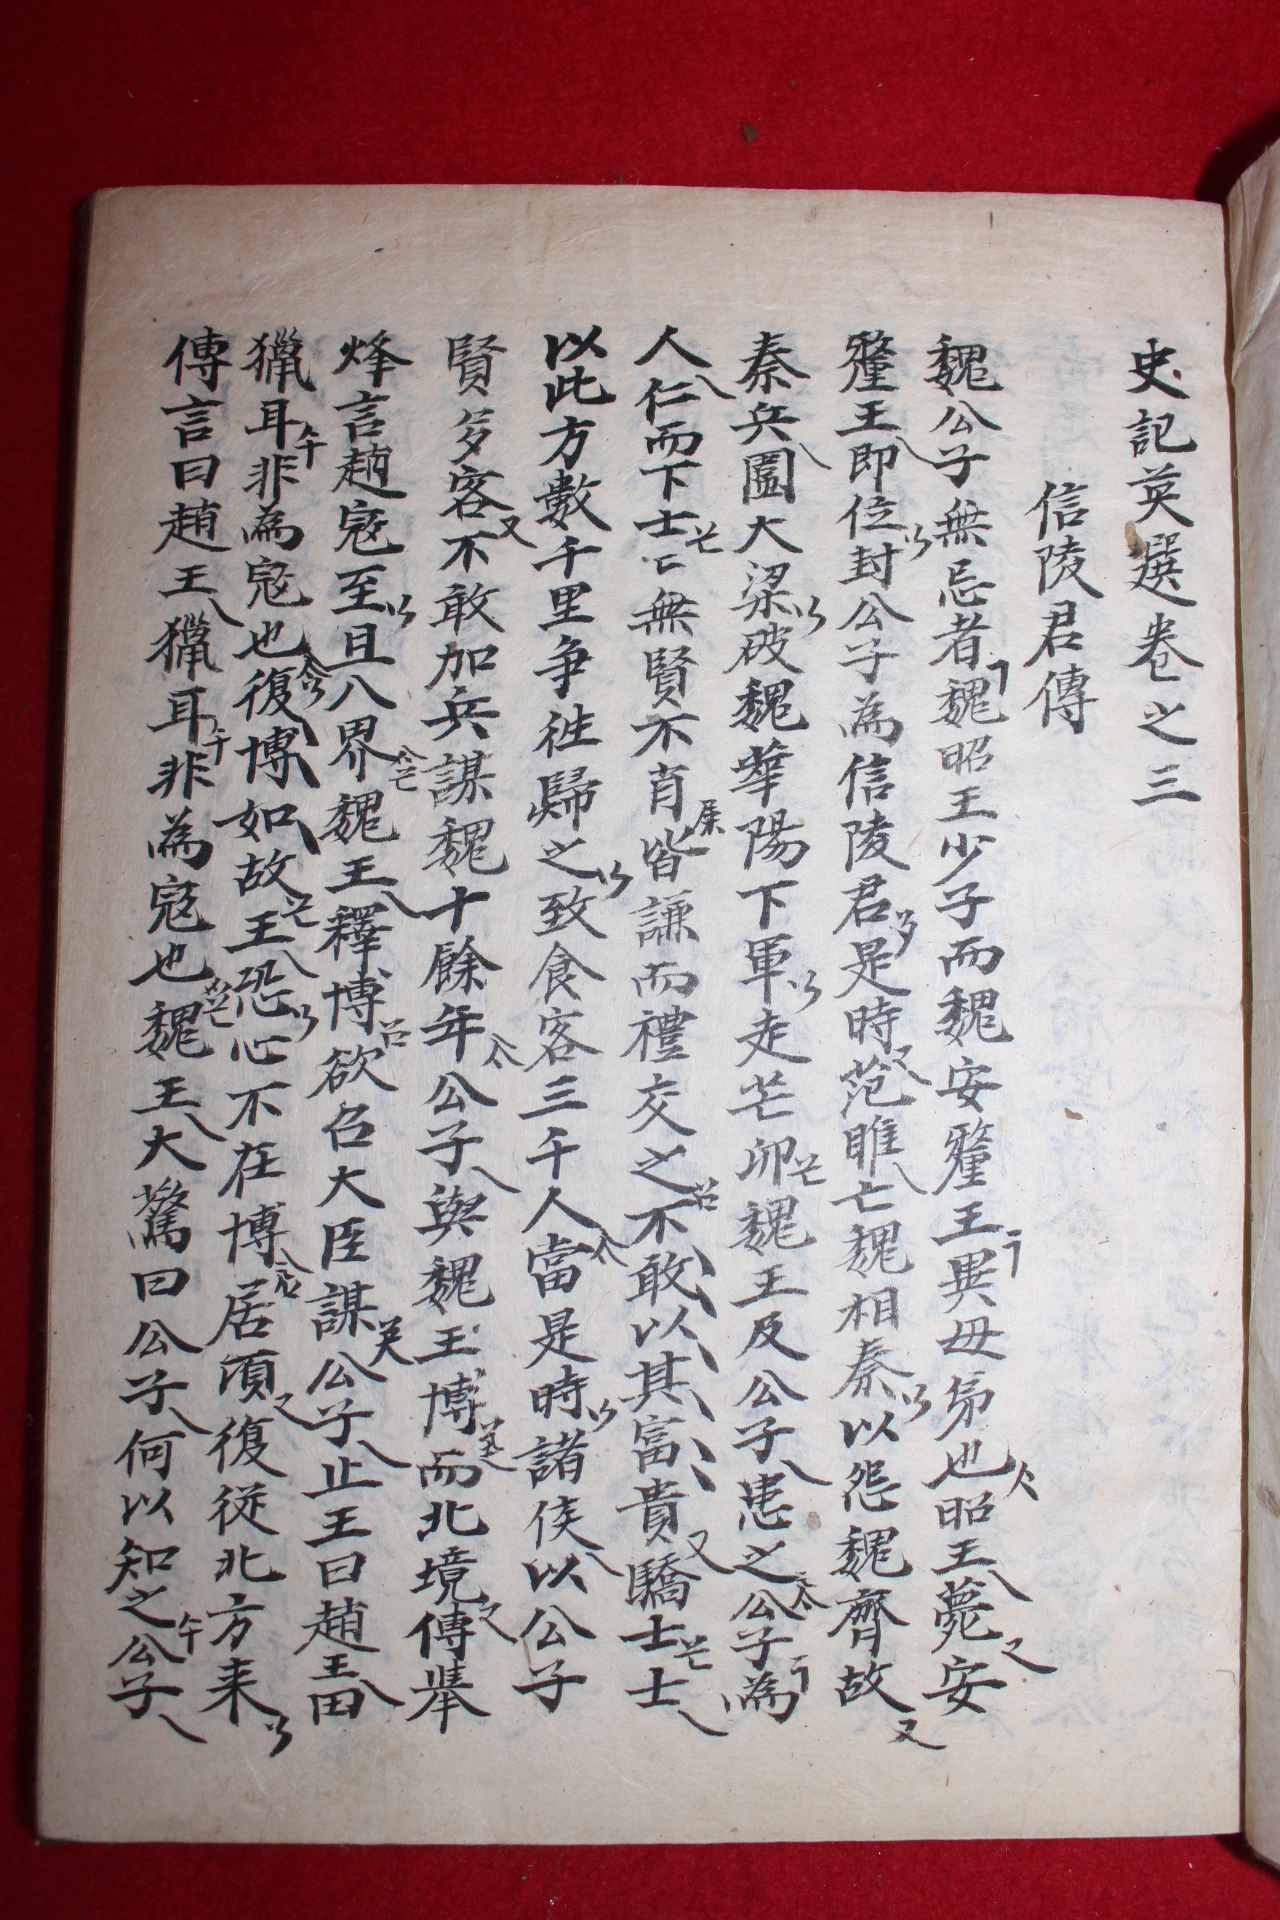 史記英選卷之三
信陵君傳
魏公子無忌者魏昭王少子而魏安釐王異母弟也昭王薨安
釐王即位封公子為信陵君是時范雎亡魏相秦以怨魏齊故
秦兵圍大梁破魏華陽下軍走芒卯魏王及公子患之公子為
人仁而下士士無賢不肖皆謙而禮交之不敢以其富貴驕士士
以此方數千里爭徃歸之致食客三千人當是時諸侯以公子
賢多客不敢加兵謀魏十餘年公子與魏王博而北境傳舉
烽言趙寇至且入界魏王釋博欲召大臣謀公子止王曰趙王田
獵耳非為寇也復博如故王恐心不在博居頃復從北方来
傳言曰趙王獵耳非為寇也魏王大驚曰公子何以知之公子